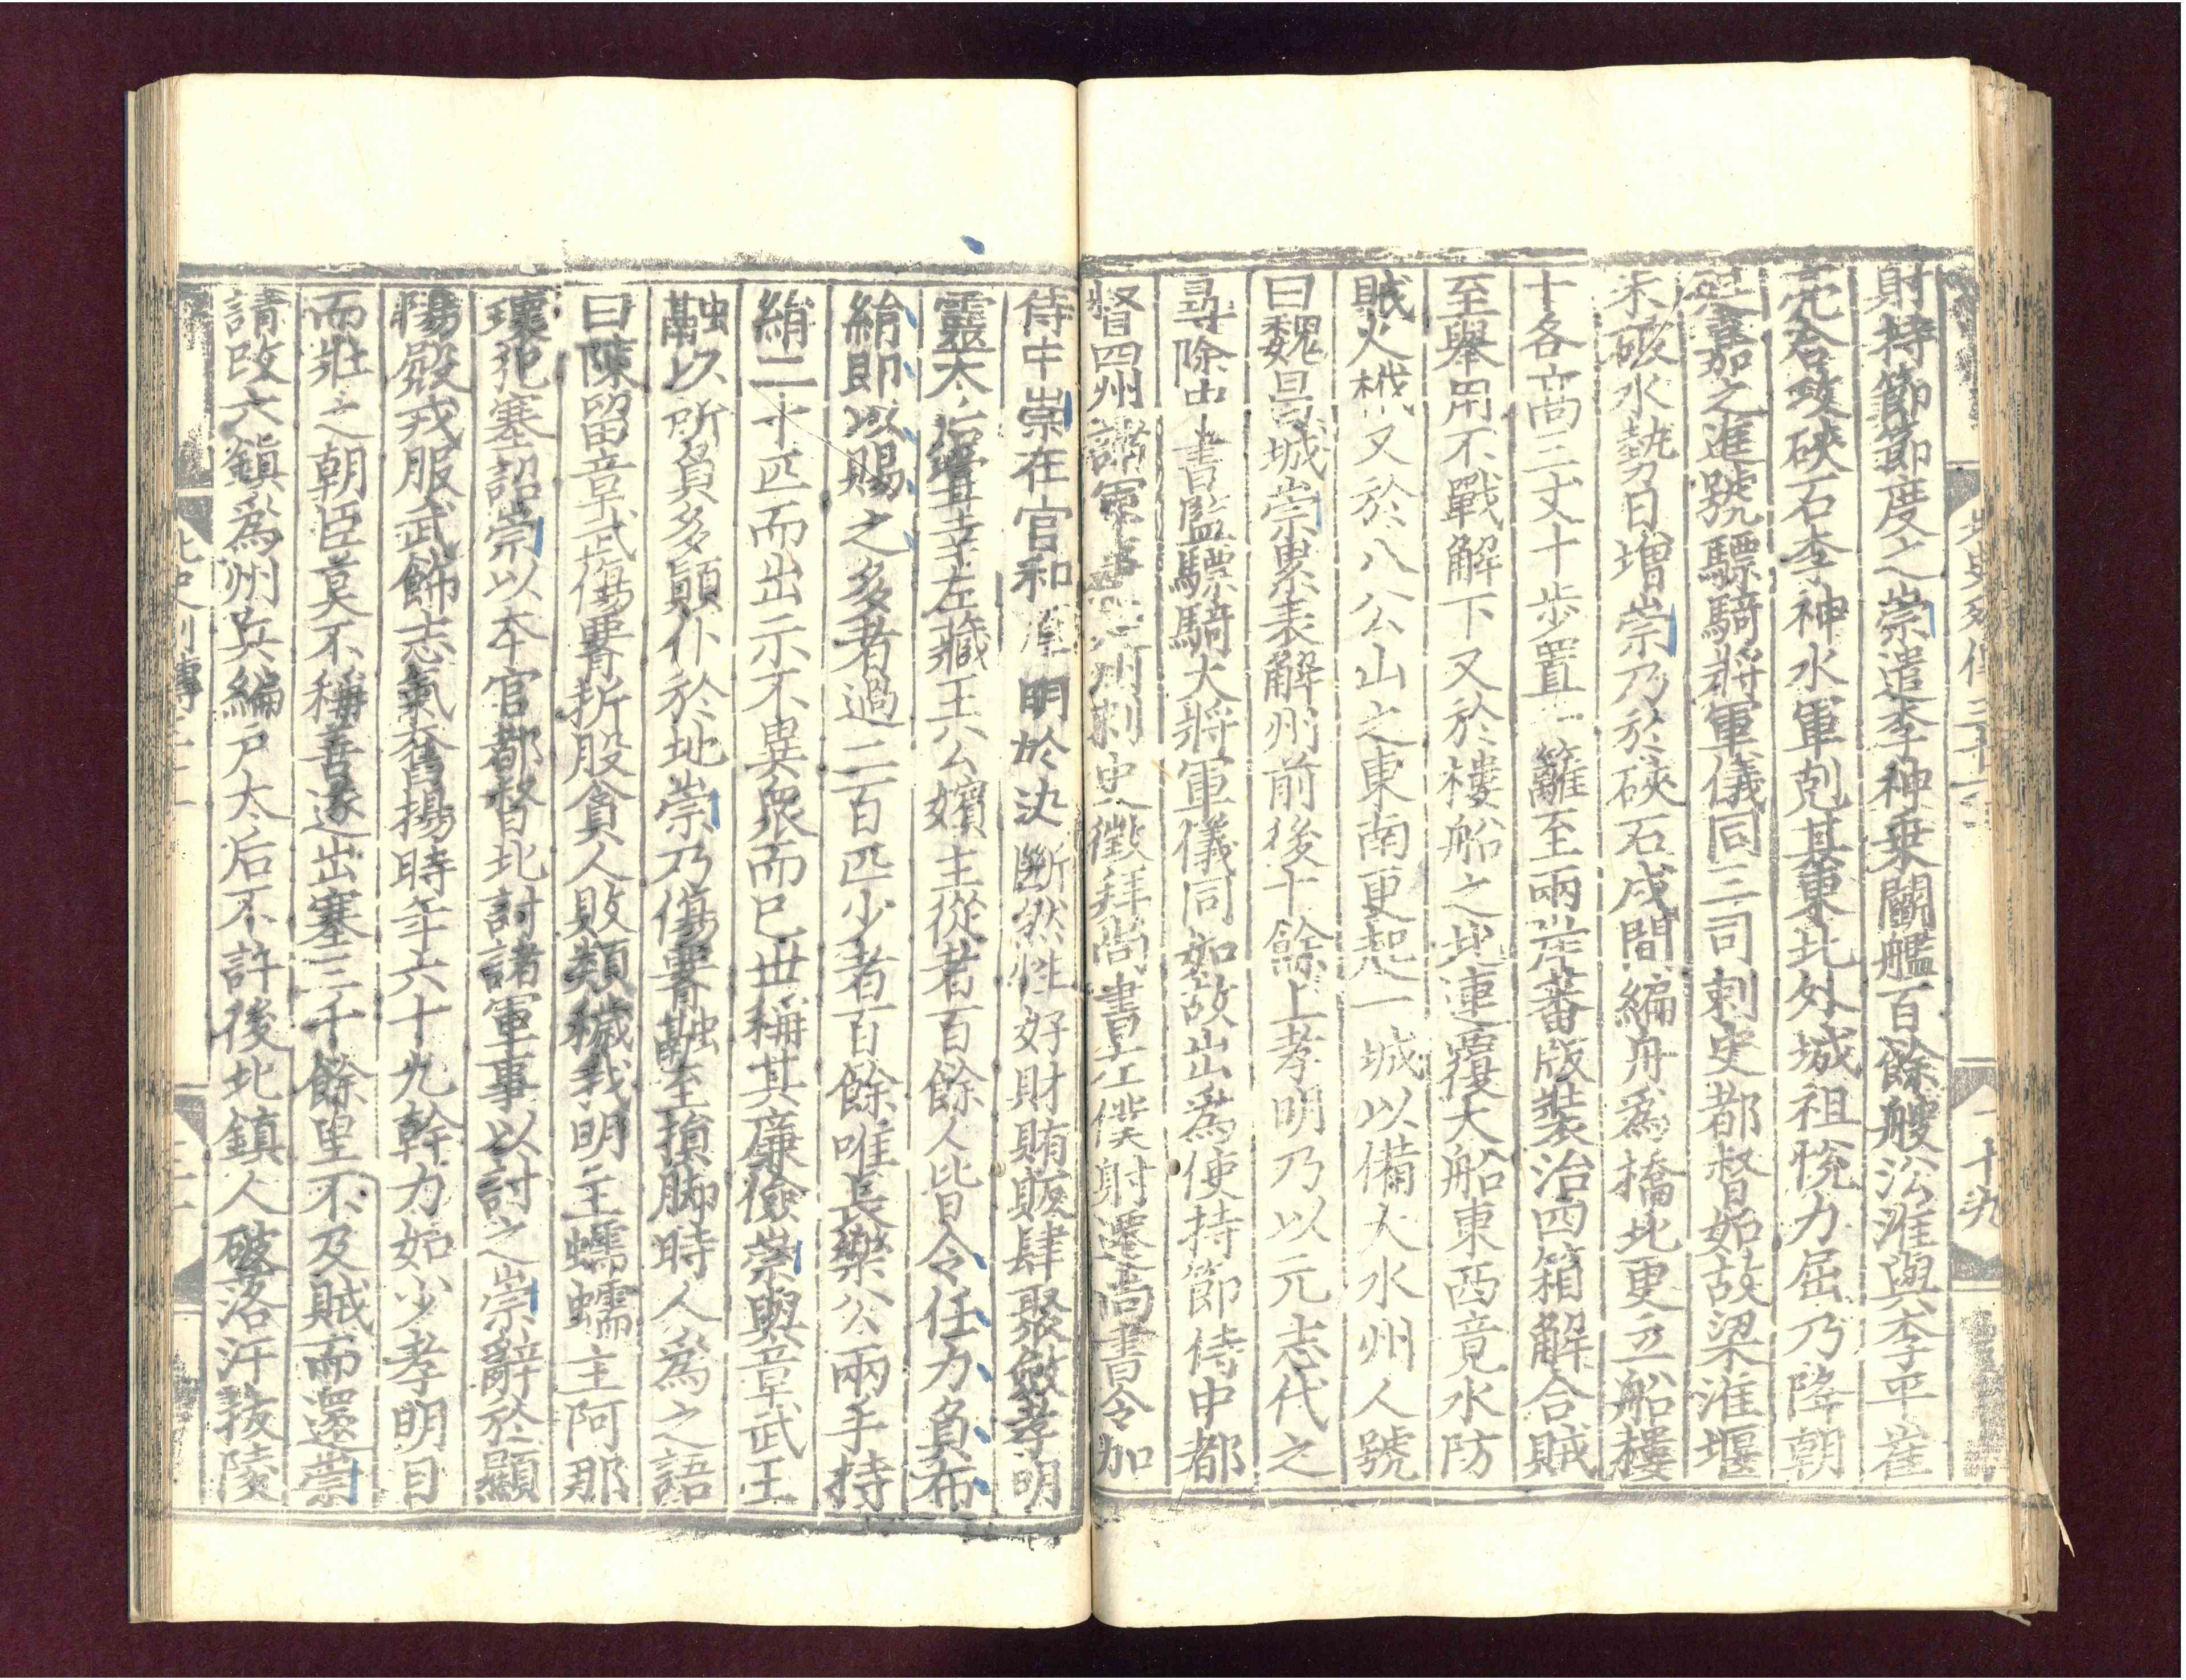 北史列傳三十一
二十九
射持節節度之崇遣李神乗鬭艦百餘艘㳂淮與李平崔
亮合攻硤石李神水軍剋其東北外城祖悅力屈乃降朝
廷嘉之進號驃騎將軍儀同三司刺史都督如故梁淮堰
未破水勢日増崇乃於硤石戍間編舟爲橋北更立船樓
十各高三丈十步置一籬至兩岸蕃版裝治四箱解合賊
至舉用不戰解下又於樓船之北連覆大船東西竟水防
賊火栰又於八公山之東南更起一城以備大水州人號
曰魏昌城崇累表解州前後十餘上孝明乃以元志代之
尋除中書監驃騎大將軍儀同如故出爲使持節侍中都
督四州諸軍事刺史徵拜尚書左僕射遷尚書令加
侍中崇在官和厚明於決斷然性好財賄販肆聚斂孝明
靈太后嘗幸左藏王公嬪主從者百餘人皆令任力負布
絹即以賜之多者過二百匹少者百餘唯長樂公兩手持
絹二十匹而出示不異衆而已世稱其廉儉崇與章武王
融以所負多顚仆於地崇乃傷署融至損脚時人爲之語
曰陳留章武傷署折股貪人敗類穢我明主蠕蠕主阿那
瓌犯塞詔崇以本官都督北討諸軍事以討之崇辭於顯
陽殿戎服武飾志氣奮揚時年六十九幹力如少孝明目
而壯之朝臣莫不稱善遂出塞三千餘里不及賊而還崇
請改六鎮爲州兵編戶太后不許後北鎮人破落汗拔陵
北史列傳三十一
三十